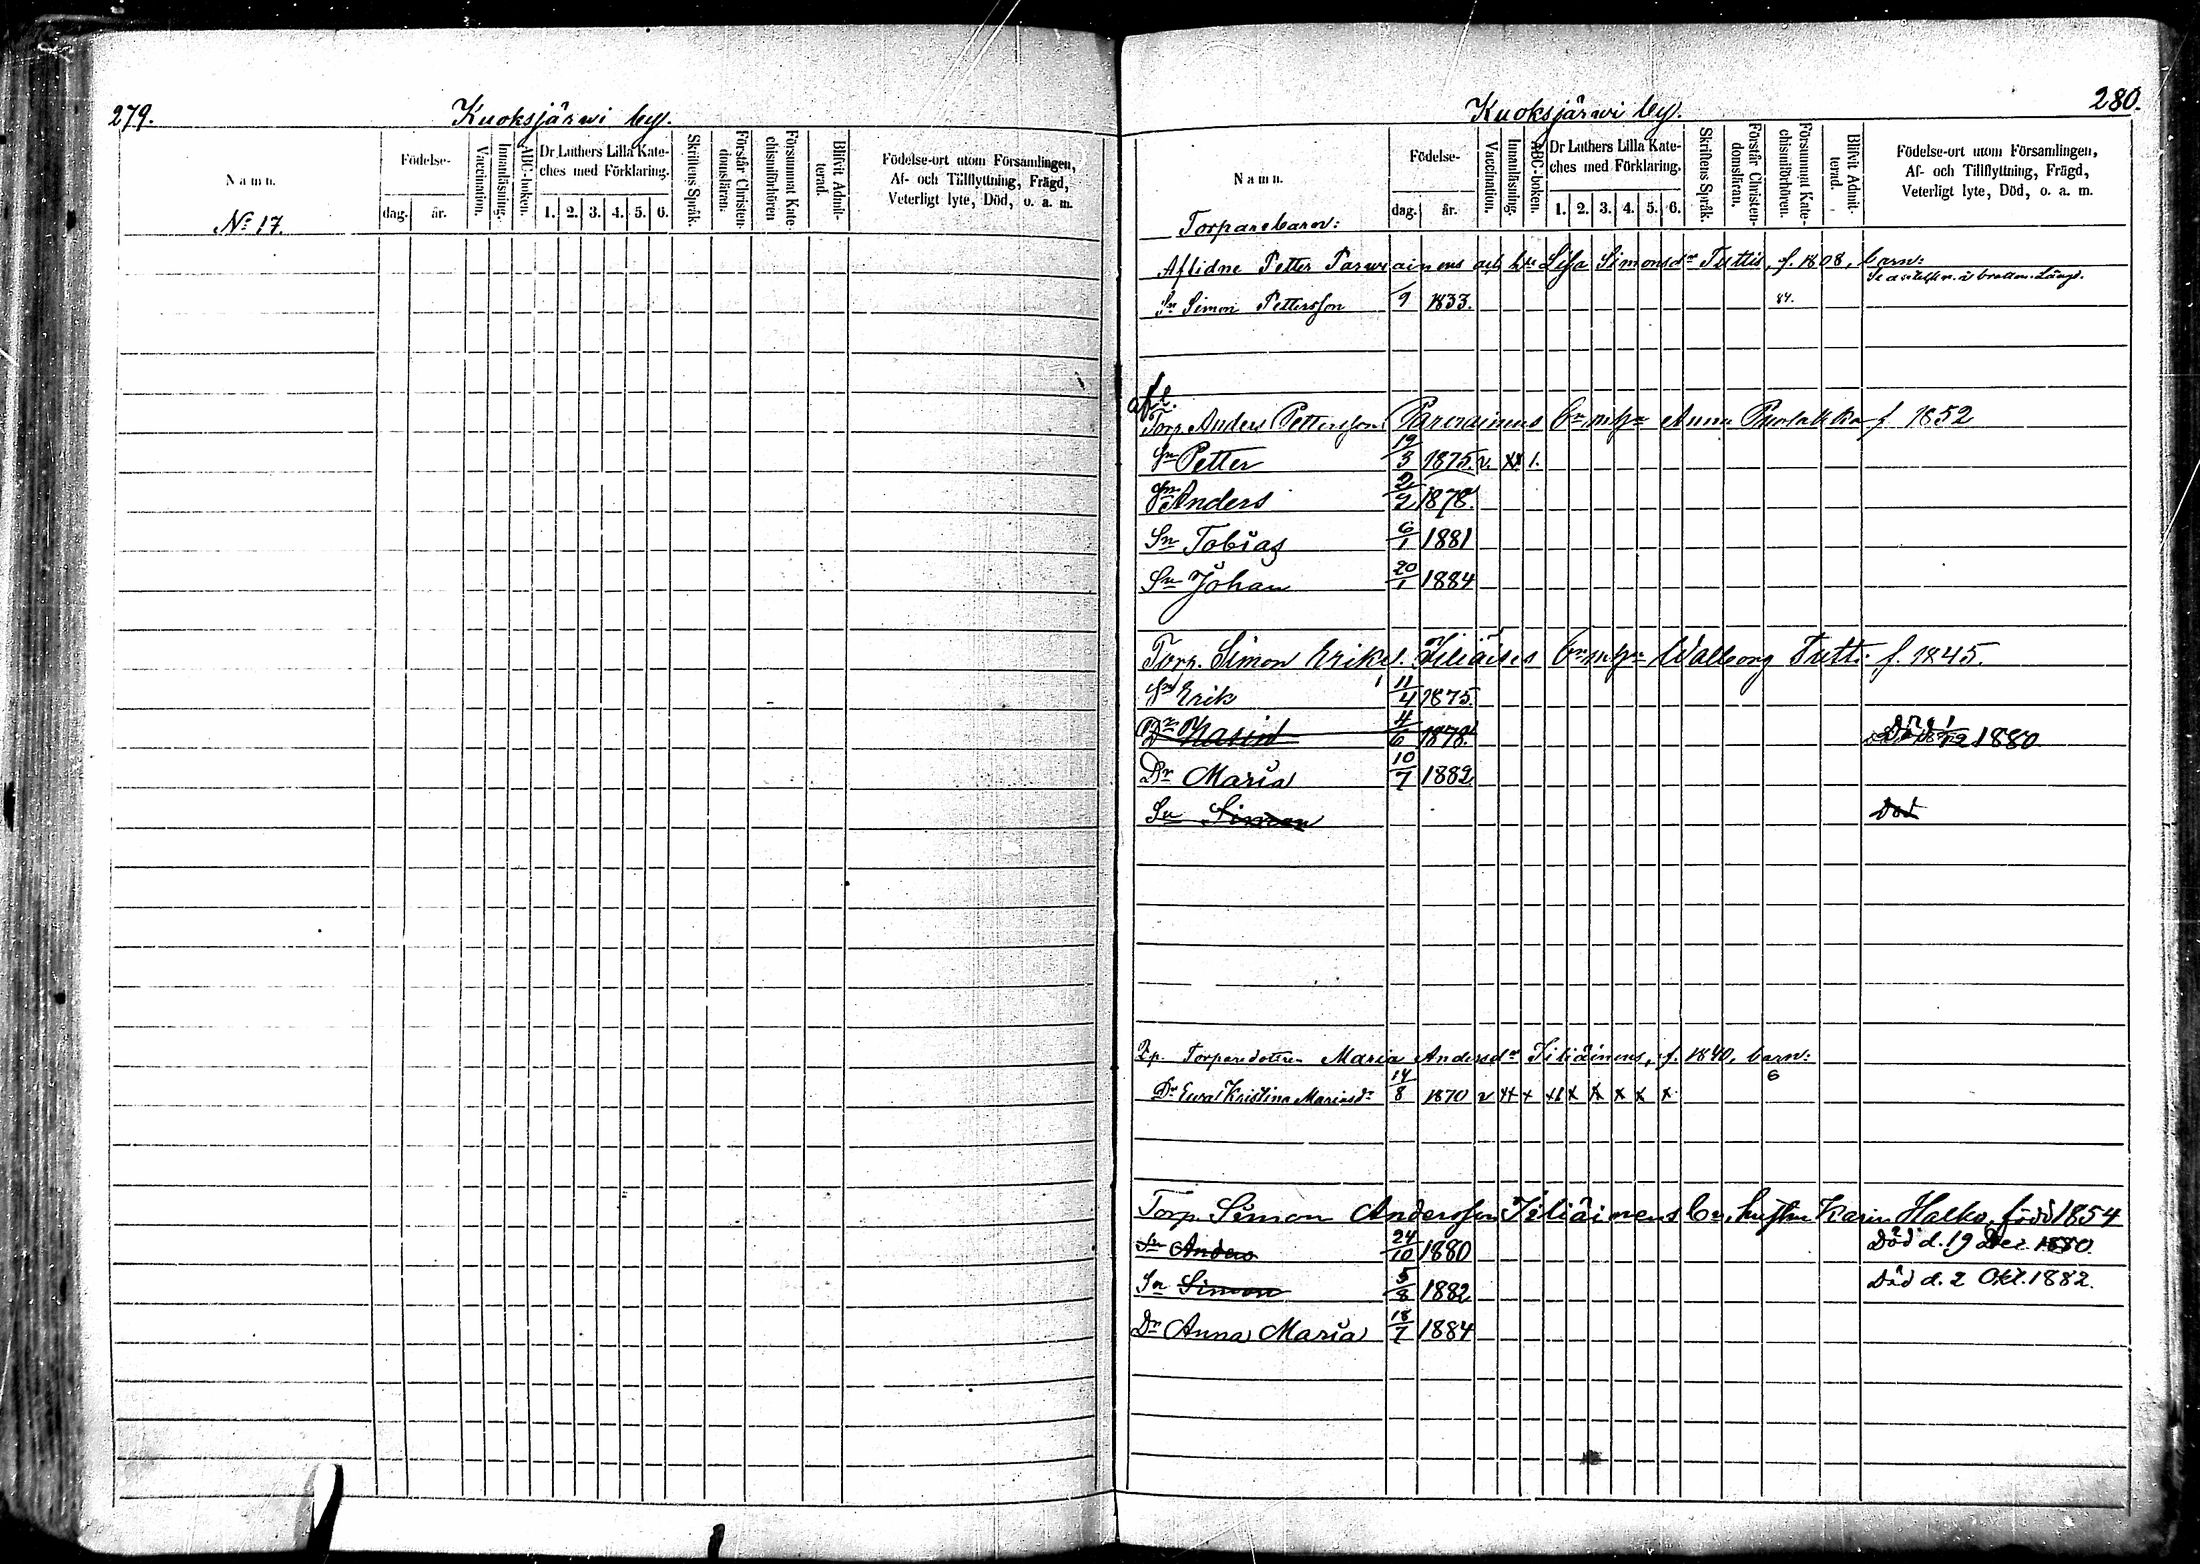 279.
Kuoksjärwi by.
Namn.
Födelse-
dag. år.
Vaccination.
Innanläsning.
ABC-boken.
Dr Luthers Lilla Kate-
ches med Förklaring.
1. 2. 3. 4. 5. 6.
Skriftens Språk.
Förstår Christen-
domsläran.
Försummat Kate-
chismiförhören
Blifvit Admit-
terad.
Födelse-ort utom Församlingen,
Af- och Tillflyttning, Frägd,
Veterligt lyte, Död, o. a. m.
No 17.
280.
Kuoksjärwi by.
Namn.
Födelse-
dag. år.
Vaccination.
Innanläsning.
ABC-boken.
Dr Luthers Lilla Kate-
ches med Förklaring.
1. 2. 3. 4. 5. 6.
Skriftens Språk.
Förstår Christen-
domsläran.
Försummat Kate-
chismiförhören.
Blifvit Admit-
terad.
Födelse-ort utom Församlingen,
Af- och Tillflyttning, Frägd,
Veterligt lyte, Död, o. a. m.
Torparebarn:
Aflidne Petter Parwiainens och hu Lisa Simonsdr Tuttis, f. 1808, barn:
Sn Simon Pettersson 9 1833. 84.
afl.
Torp. Anders Pettersson Parwiainens bn m hn Anna f 1852
Sn Petter 19/3 1875. v. xx 1.
Sn Anders 2/2 1878.
Sn Tobias 6/1 1881
Sn Johan 20/1 1884
Torp. Simon Eriks. Iiliäises bn m hn Walborg Tutti f. 1845.
Sn Erik 11/4 1875.
Dr Karin 4/6 1878. 1880
Dr Maria 10/7 1882
Sn Simon Död
Torparedottren Maria Andersdr Iiliäinens, f. 1840, barn:
Dr Ewa Kristina Mariasdr 14/8 1870 v xx x xx x x x x 6
Torp. Simon Andersson Iiliäinens bn, hustru Karin Halko, född 1854
Sn Anders 24/10 1880 Död d. 19 Dec. 1880.
Sn Simon 5/8 1882 Död d. 2 Okt. 1882.
Dr Anna Maria 18/7 1884